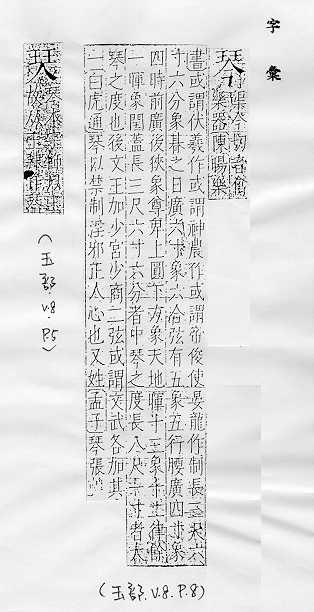 字彙
琴 渠今切音禽
樂器陳暘樂
書或謂伏羲作或謂神農作或謂帝俊使晏龍作制長三尺六
寸六分象朞之日廣六寸象六合弦有五象五行腰廣四寸象
四時前廣後狹象尊卑上圓下方象天地暉十三象十二律餘
一暉象閏蓋長三尺六寸六分者中琴之度長八尺二寸者大
琴之度也後文王加少宮少商二弦或謂文武各加其
一白虎通琴以禁制淫邪正人心也又姓孟子琴張
(玉部.V.8.P.8)
(玉部 V.8 P.5)